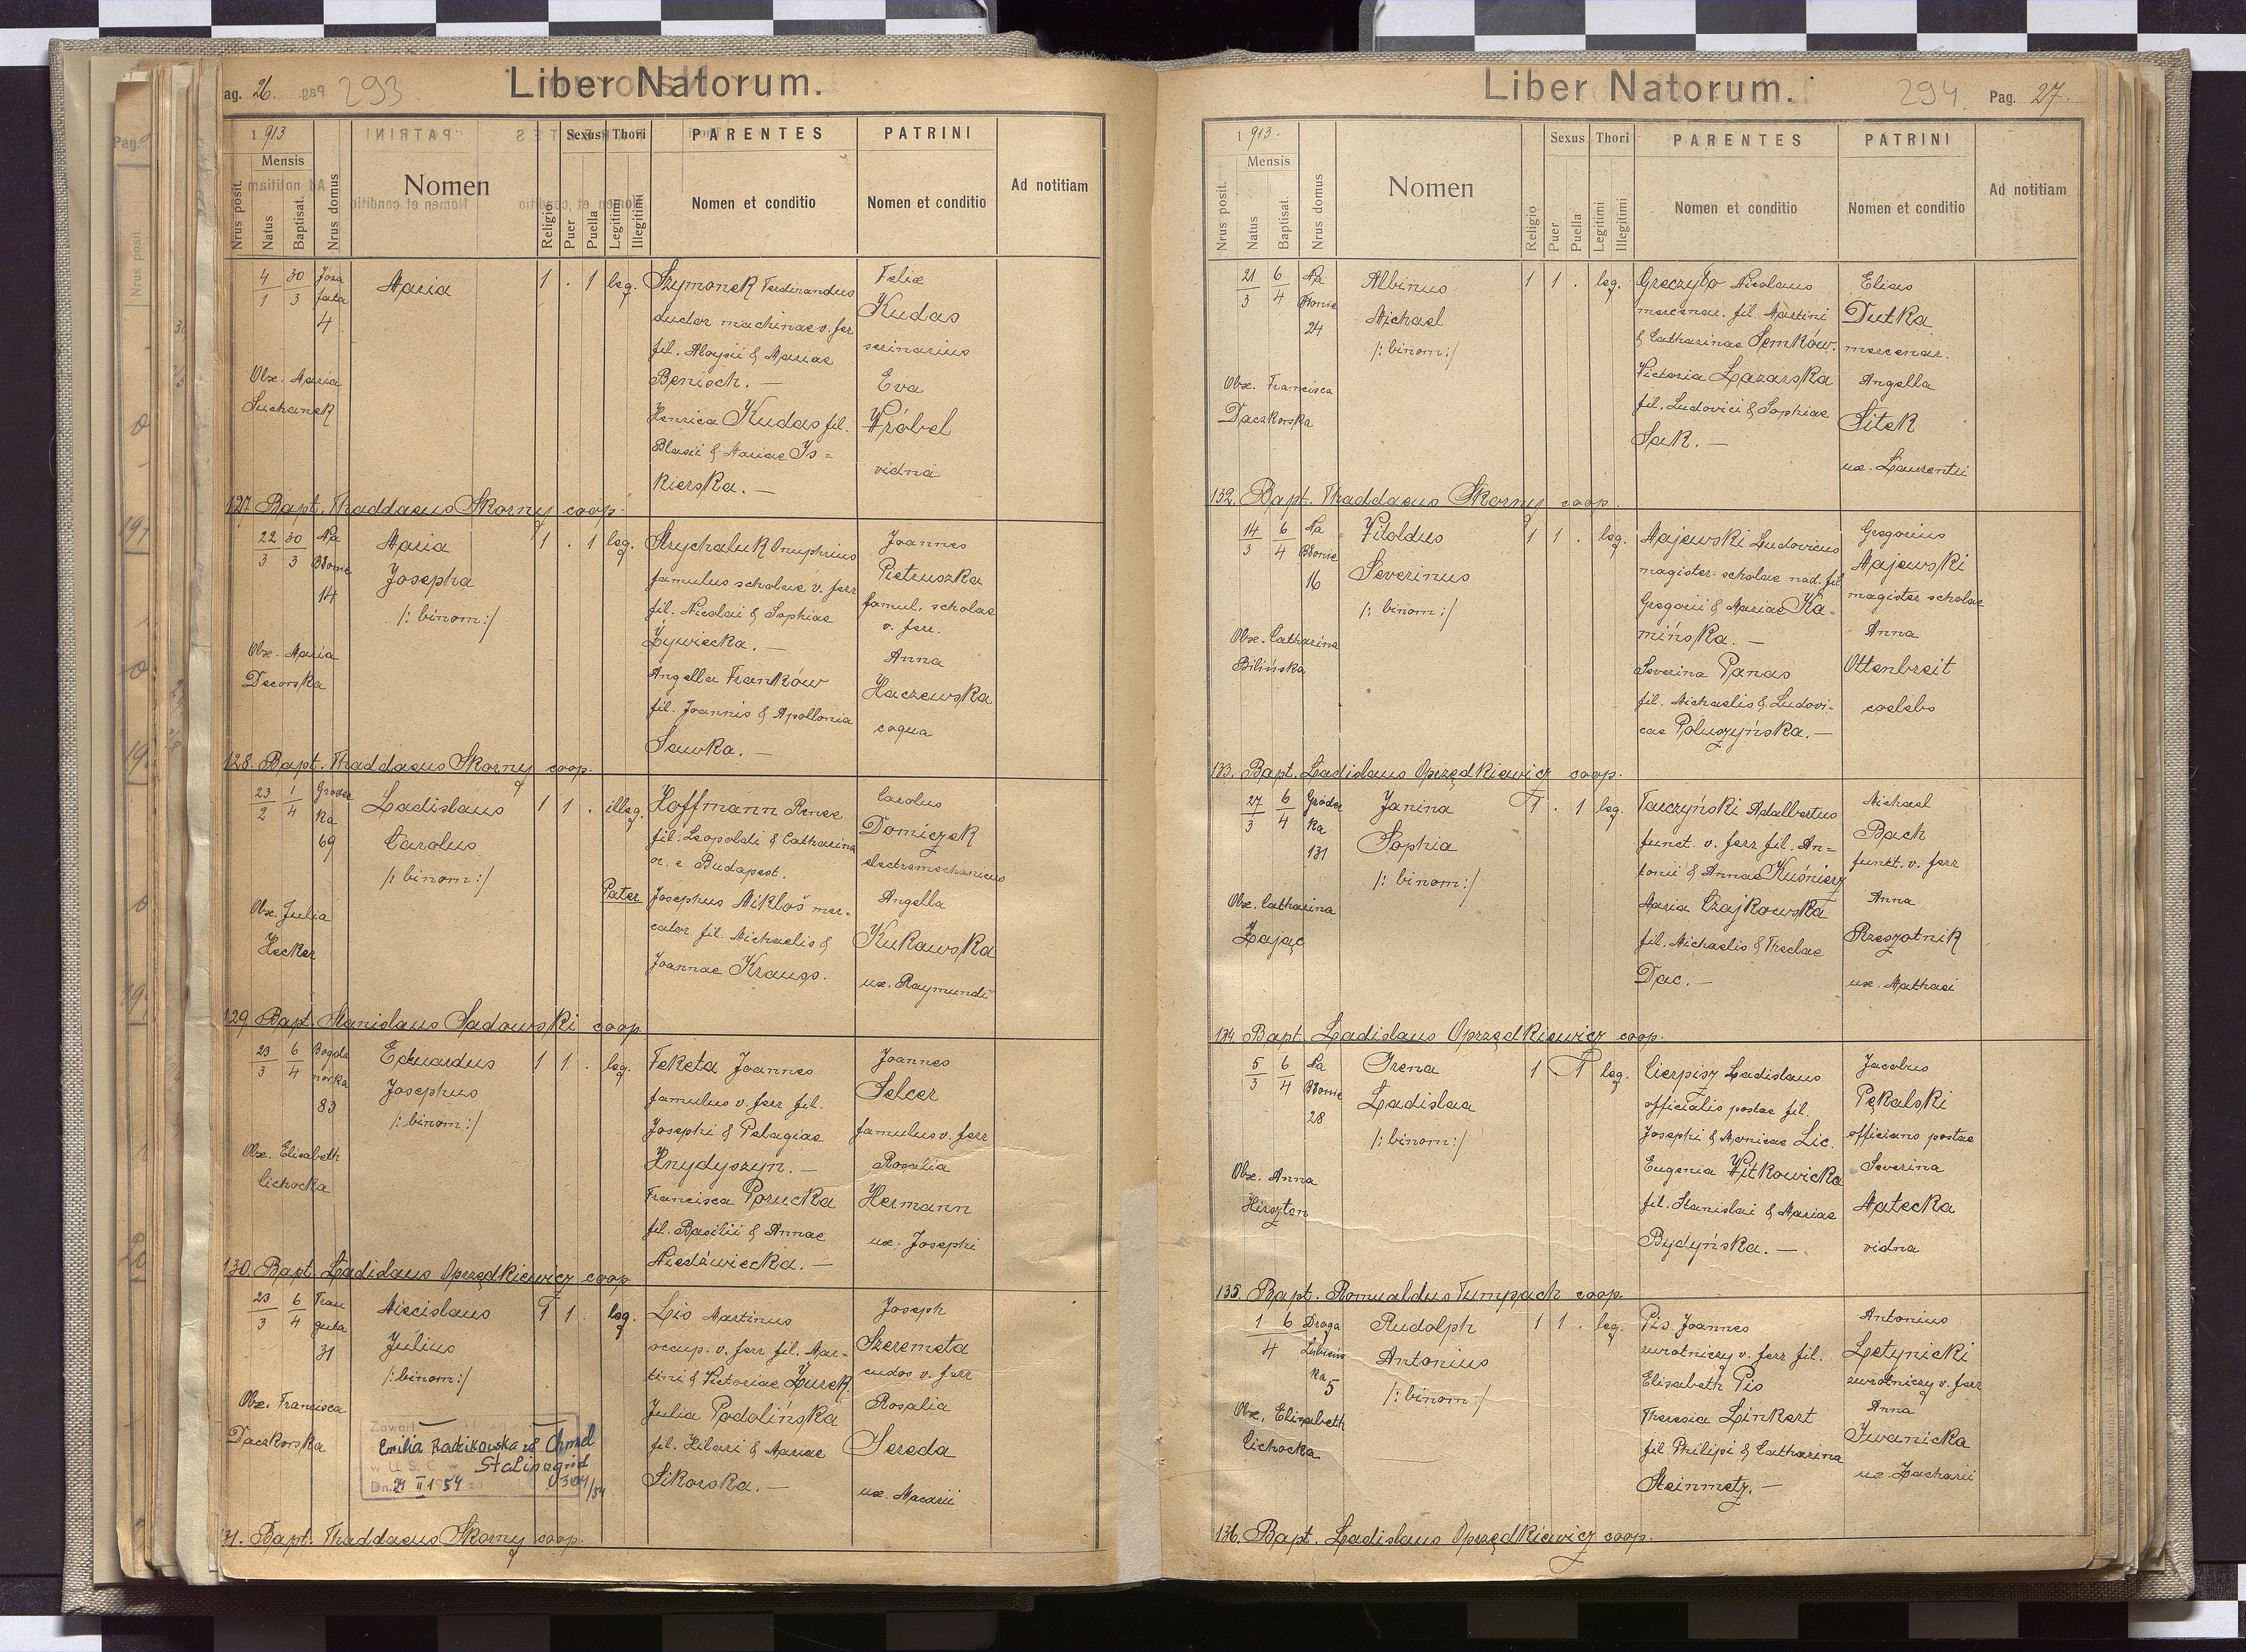 Pag. 26. 293
Liber Natorum.
1913
Mensis
Nrus posit.
Natus
Baptisat.
Nrus domus
Nomen
Religio
Sexus
Puer
Puella
Thori
Legitimi
Illegitimi
PARENTES
Nomen et conditio
PATRINI
Nomen et conditio
Ad notitiam
4/1 30/3 Joza
fata
4
Maria
1 . 1 leg.
Szymonek Ferdinandus
ductor machinae v. ferr
fil. Aloysii & Mariae
Benisch. —
Henrica Kudas fil.
Blasii & Mariae Is=
kierska. —
Felix
Kudas
scrinarius
Eva
Wróbel
vidna
Obx. Maria
Suchanek
127. Bapt. Thaddaeus Skorny coop.
22/3 30/3 Na
Błonie
14
Maria
Josepha
/: binom :/
1 . 1 leg.
Strychaluk Onuphrius
famulus scholae v. ferr
fil. Nicolai & Sophiae
Żywiecka. —
Angella Franków
fil. Joannis & Apollonia
Sawka. —
Joannes
Pietruszka
famul. scholae
v. ferr.
Anna
Haczewska
coqua
Obx. Maria
Decorska
128. Bapt. Thaddaeus Skorny coop.
23/2 1/4 Gróde
ka
69
Ladislaus
Carolus
/: binom :/
1 1 . illeg.
Hoffmann Renee
fil. Leopoldi & Catharina
or. e Budapest.
Pater Josephus Mikloš mer-
cator fil. Michaelis &
Joannae Krauss.
Carolus
Domiczek
electromechanicus
Angella
Kukawska
ux. Raymundi
Obx. Julia
Hecker
129. Bapt. Stanislaus Sadowski coop
23/3 6/4 Bogda
nówka
83
Eduardus
Josephus
/: binom :/
1 1 . leg.
Feketa Joannes
famulus v. ferr fil.
Josephi & Pelagiae
Hnydyszyn. —
Francisca Porucka
fil. Basilii & Annae
Niedźwiecka. —
Joannes
Selcer
famulus v. ferr
Rosalia
Hermann
ux. Josephi
Obx. Elisabeth
Cichocka
130. Bapt. Ladislaus Oprzędkiewicz coop
23/3 6/4 Frau
guta
31
Miecislaus
Julius
/: binom :/
1 1 . leg.
Lis Martinus
occup. v. ferr fil. Mar-
tini & Victoriae Żurek.
Julia Podolińska
fil. Hilari & Mariae
Sikorska. —
Joseph
Szeremeta
cudos v. ferr
Rosalia
Sereda
ux. Macarii
Obx. Francisca
Daczkorska
Zawarł
Emilia Radzikowska zd Chmel
w U.S.C. w Stalinogród
Dn. 21 II 1954
131. Bapt. Thaddaeus Skorny coop.
Liber Natorum.
294. Pag. 27.
1913.
Mensis
Nrus posit.
Natus
Baptisat.
Nrus domus
Nomen
Religio
Sexus
Puer
Puella
Thori
Legitimi
Illegitimi
PARENTES
Nomen et conditio
PATRINI
Nomen et conditio
Ad notitiam
21/3 6/4 Na
Błonie
24
Albinus
Michael
/: binom :/
1 1 . leg.
Greczyło Nicolaus
mercenar. fil. Martini
& Catharinae Semków.
Victoria Łazarska
fil. Ludovici & Sophiae
Sak. —
Elias
Dutka
mercenar.
Angella
Sitek
ux. Laurentii
Obx. Francisca
Daczkorska
132. Bapt. Thaddaeus Skorny coop.
14/3 6/4 Na
Błonie
16
Vitoldus
Severinus
/: binom :/
1 1 . leg.
Majewski Ludovicus
magister scholae nad. fil
Gregorii & Mariae Ka-
mińska. —
Severina Panas
fil. Michaelis & Ludovi-
cae Poluszyńska. —
Gregorius
Majewski
magister scholae
Anna
Ottenbreit
coelebs
Obx. Catharina
Bilińska
133. Bapt. Ladislaus Oprzędkiewicz coop.
27/3 6/4 Gróde
ka
131
Janina
Sophia
/: binom :/
1 . 1 leg.
Tarczyński Adalbertus
funct. v. ferr fil. An-
tonii & Annae Kuśnierz
Maria Czajkowska
fil. Michaelis & Theclae
Dac. —
Michael
Bach
funct. v. ferr
Anna
Rzeszotnik
ux. Mathaei
Obx. Catharina
Zając
134. Bapt. Ladislaus Oprzędkiewicz coop.
5/3 6/4 Na
Błonie
28
Irena
Ladislaa
/: binom :/
1 1 leg.
Cierpisz Ladislaus
officialis postae fil.
Josephi & Monicae Lic.
Eugenia Witkowicka
fil. Stanislai & Mariae
Bydyńska. —
Jacobus
Pękalski
officians postae
Severina
Matecka
vidna
Obx. Anna
Hirszten
135. Bapt. Romualdus Tumpach coop.
1/4 6 Droga
Lubieńs
ka
5
Rudolph
Antonius
/: binom :/
1 1 . leg.
Pis Joannes
zwrotniczy v. ferr fil.
Elisabeth Pis
Theresia Linkert
fil Philipi & Catharina
Steinmetz. —
Antonius
Letynicki
zwrotniczy v. ferr
Anna
Iwanicka
ux. Zacharii
Obx. Elisabeth
Cichocka
136. Bapt. Ladislaus Oprzędkiewicz coop.